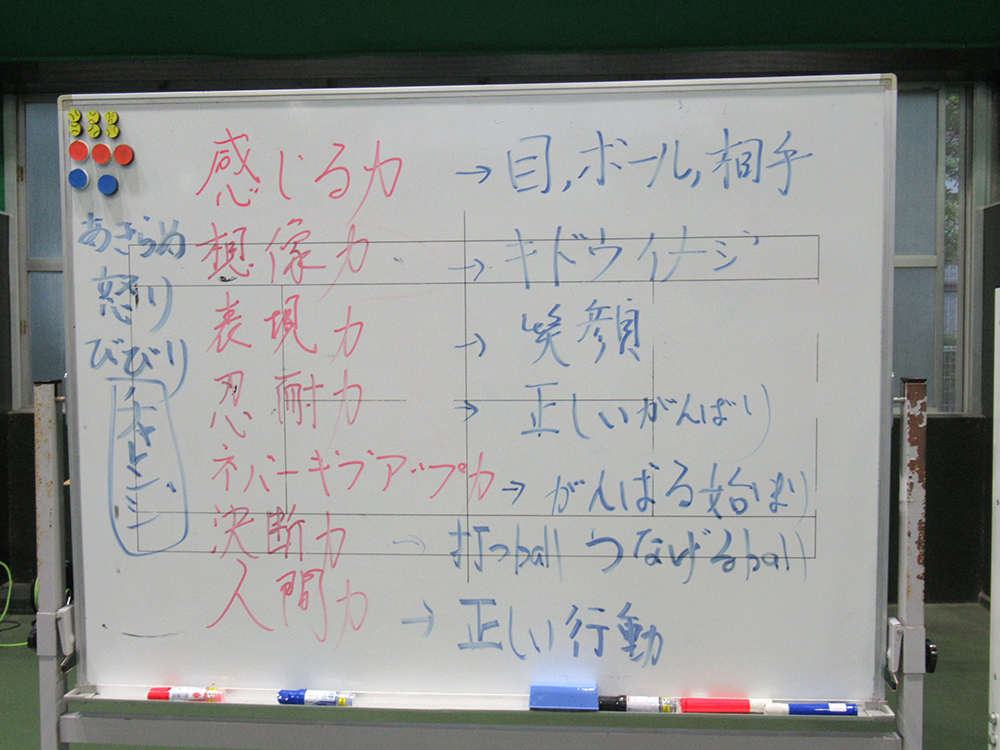 感じる力 → 目,ボール,相手
想像力 → キドウイメージ
表現力 → 笑顔
忍耐力 → 正しいがんばり
ネバーギブアップ力 → がんばる始まり
決断力 → 打つball つなげるball
人間力 → 正しい行動
あきらめ
怒り
びびり
チャレンジ